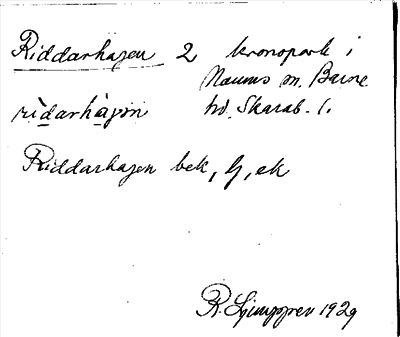 Riddarhagen 2 kronopark i
Naums sn. Barne
rìdarhàgən hd. Skarab. l.
Riddarhagen bek, G, ek
R. Ljunggren 1929